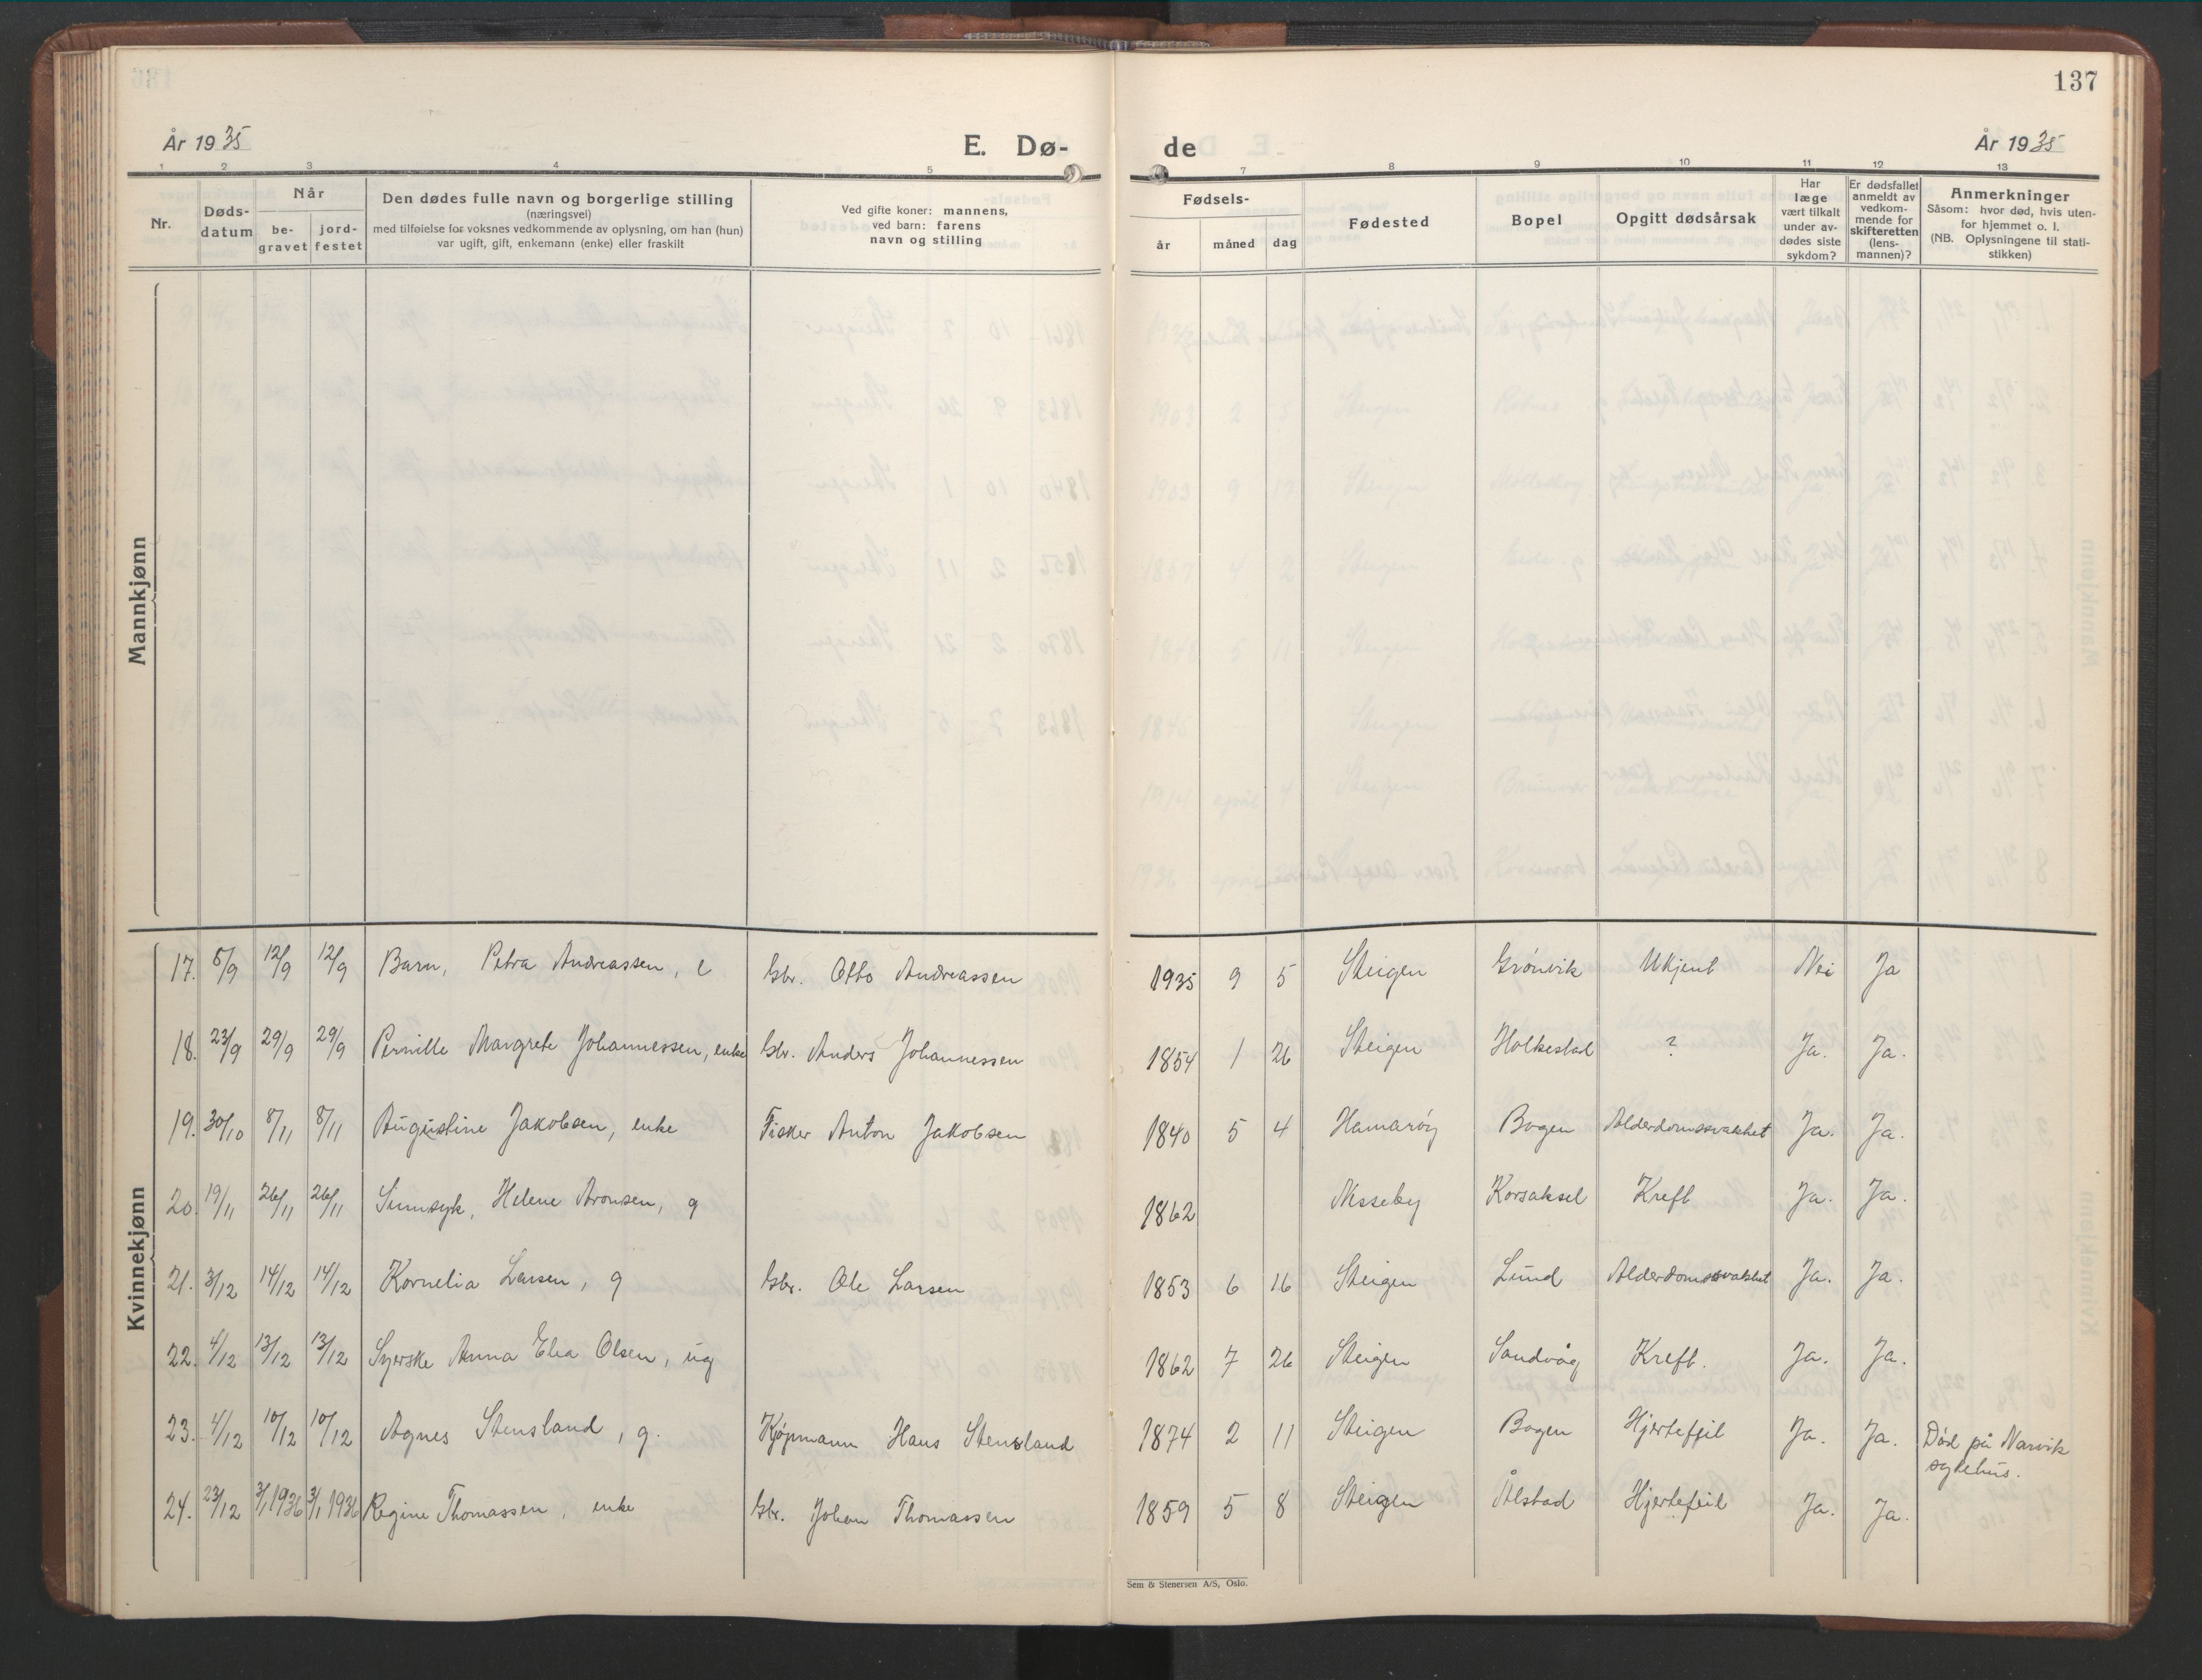 137
År 1935 E. Dø- de År 1935
1 2 3 4 5 7 8 9 10 11 12 13
Nr.
Døds-
datum
Når
be-
gravet
jord-
festet
Den dødes fulle navn og borgerlige stilling
(næringsvei)
med tilføielse for voksnes vedkommende av oplysning, om han (hun)
var ugift, gift, enkemann (enke) eller fraskilt
Ved gifte koner: mannens,
ved barn: farens
navn og stilling
Fødsels-
år måned dag
Fødested
Bopel
Opgitt dødsårsak
Har
læge
vært tilkalt
under av-
dødes siste
sykdom?
Er dødsfallet
anmeldt av
vedkom-
mende for
skifteretten
(lens-
mannen)?
Anmerkninger
Såsom: hvor død, hvis uten-
for hjemmet o. l.
(NB. Oplysningene til stati-
stikken)
Mannkjønn
Kvinnekjønn
17. 5/9 12/9 12/9 Barn, Petra Andreassen, e Gbr. Otto Andreassen 1935 9 5 Steigen Grönvik Ukjent Nei Ja
18. 23/9 29/9 29/9 Pernille Margrete Johannessen, enke Gbr. Anders Johannessen 1854 1 26 Steigen Holkestad ? Ja. Ja.
19. 30/10 8/11 8/11 Augustine Jakobsen, enke Fisker Anton Jakobsen 1840 5 4 Hamaröy Bogen Alderdomssvakhet Ja. Ja.
20. 19/11 26/11 26/11 Sinnsyk, Helene Aronsen, g 1862 Nesseby Korsaksel Kreft Ja. Ja.
21. 3/12 14/12 14/12 Kornelia Larsen, g Gbr. Ole Larsen 1853 6 16 Steigen Lund Alderdomssvakhet Ja. Ja.
22. 4/12 13/12 13/12 Syerske Anna Elea Olsen, ug 1862 7 26 Steigen Sandvåg Kreft. Ja. Ja.
23. 4/12 10/12 10/12 Agnes Stensland, g. Kjøpmann Hans Stensland 1874 2 11 Steigen Bogen Hjertefeil Ja. Ja. Död på Narvik
sykehus.
24. 23/12 3/1 1936 3/1 1936 Regine Thomassen, enke Gbr. Johan Thomassen 1859 5 8 Steigen Ålstad Hjertefeil Ja. Ja.
Sem & Stenersen A/S, Oslo.